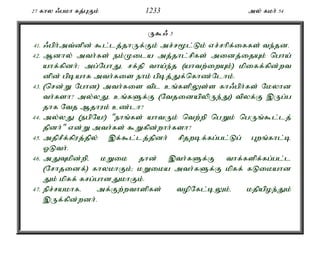 27 கால ஃபமா கத்புகும் 1233 அல் கமர் 54
ருகூஃ 3
41. ஃபிர்அவ்னின் கூட்டத்தாருக்கும் அச்சமூட்டும் எச்சரிக்கைகள் வந்தன.
42. ஆனால் அவர்கள் நம்முடைய அத்தாட்சிகள் அனைத்தையும் பொய்
யாக்கினர். அப்போது, சக்தி வாய்ந்த (யாவற்றையும்) மிகைக்கின்றவ
னின் பிடியாக அவர்களை நாம் பிடித்துக்கொண்டோம்.
43. (சென்று போன) அவர்களை விட உங்களிலுள்ள காஃபிர்கள் மேலான
வர்களா? அல்லது, உங்களுக்கு (வேதனையிலிருந்து) விலக்கு இருப்ப
தாக வேத ஆதாரம் உண்டா?
44. அல்லது (நபியே) "நாங்கள் யாவரும் வெற்றி பெறும் பெருங்கூட்டத்
தினர்" என்று அவர்கள் கூறுகின்றார்களா?
45. அதிசீக்கிரத்தில் இக்கூட்டத்தினர் சிதறடிக்கப்பட்டுப் புறங்காட்டி
ஓடுவர்.
46. அதுவுமின்றி, மறுமை தான் இவர்களுக்கு வாக்களிக்கப்பட்ட
(சோதனைக்) காலமாகும்; மறுமைய அவர்களுக்கு மிகக் கடுமையான
தும் மிகக் கசப்பானதுமாகும்.
47. நிச்சயமாக, அக்குற்றவாளிகள் வழிகேட்டிலும், மதியிழந்தும்
இருக்கின்றனர்.